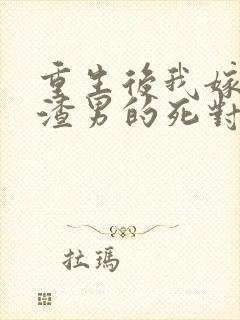 重生後我嫁
渣男的死對
拉瑪